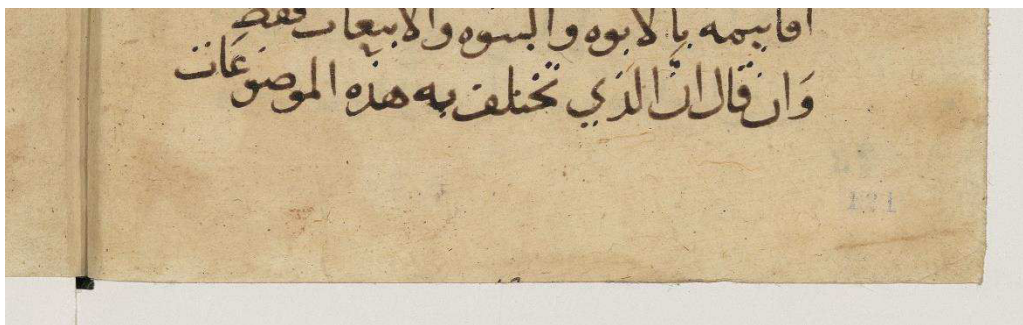 اقانيمه بالابوه والبنوه والانبعاث فقط
وان قال ان الذي تختلف به هذه الموضوعات